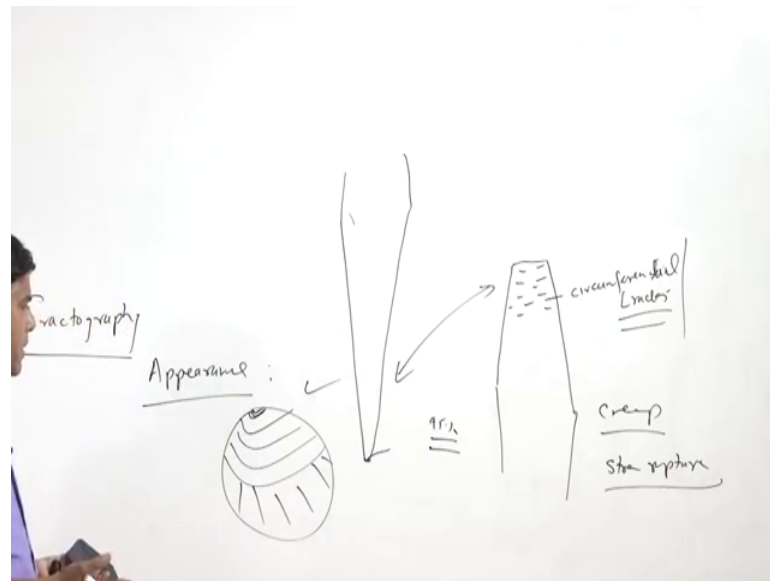 ractography
Appearance :
95%
circumferential
Cracks
Creep
Stress rupture